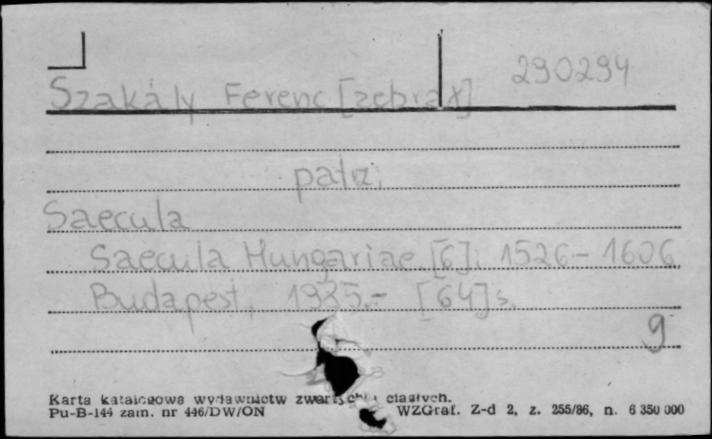 290294
Szakály Ferenc [zebrał]
patrz:
Saecula
Saecula Hungariae [6]: 1526-1606
Budapest, 1985.- [64] s.
g
Karta katalogowa wydawnictw zwartych i ciągłych.
Pu-B-144 zam. nr 446/DW/ON WZGraf. Z-d 2, z. 255/86, n. 6 350 000